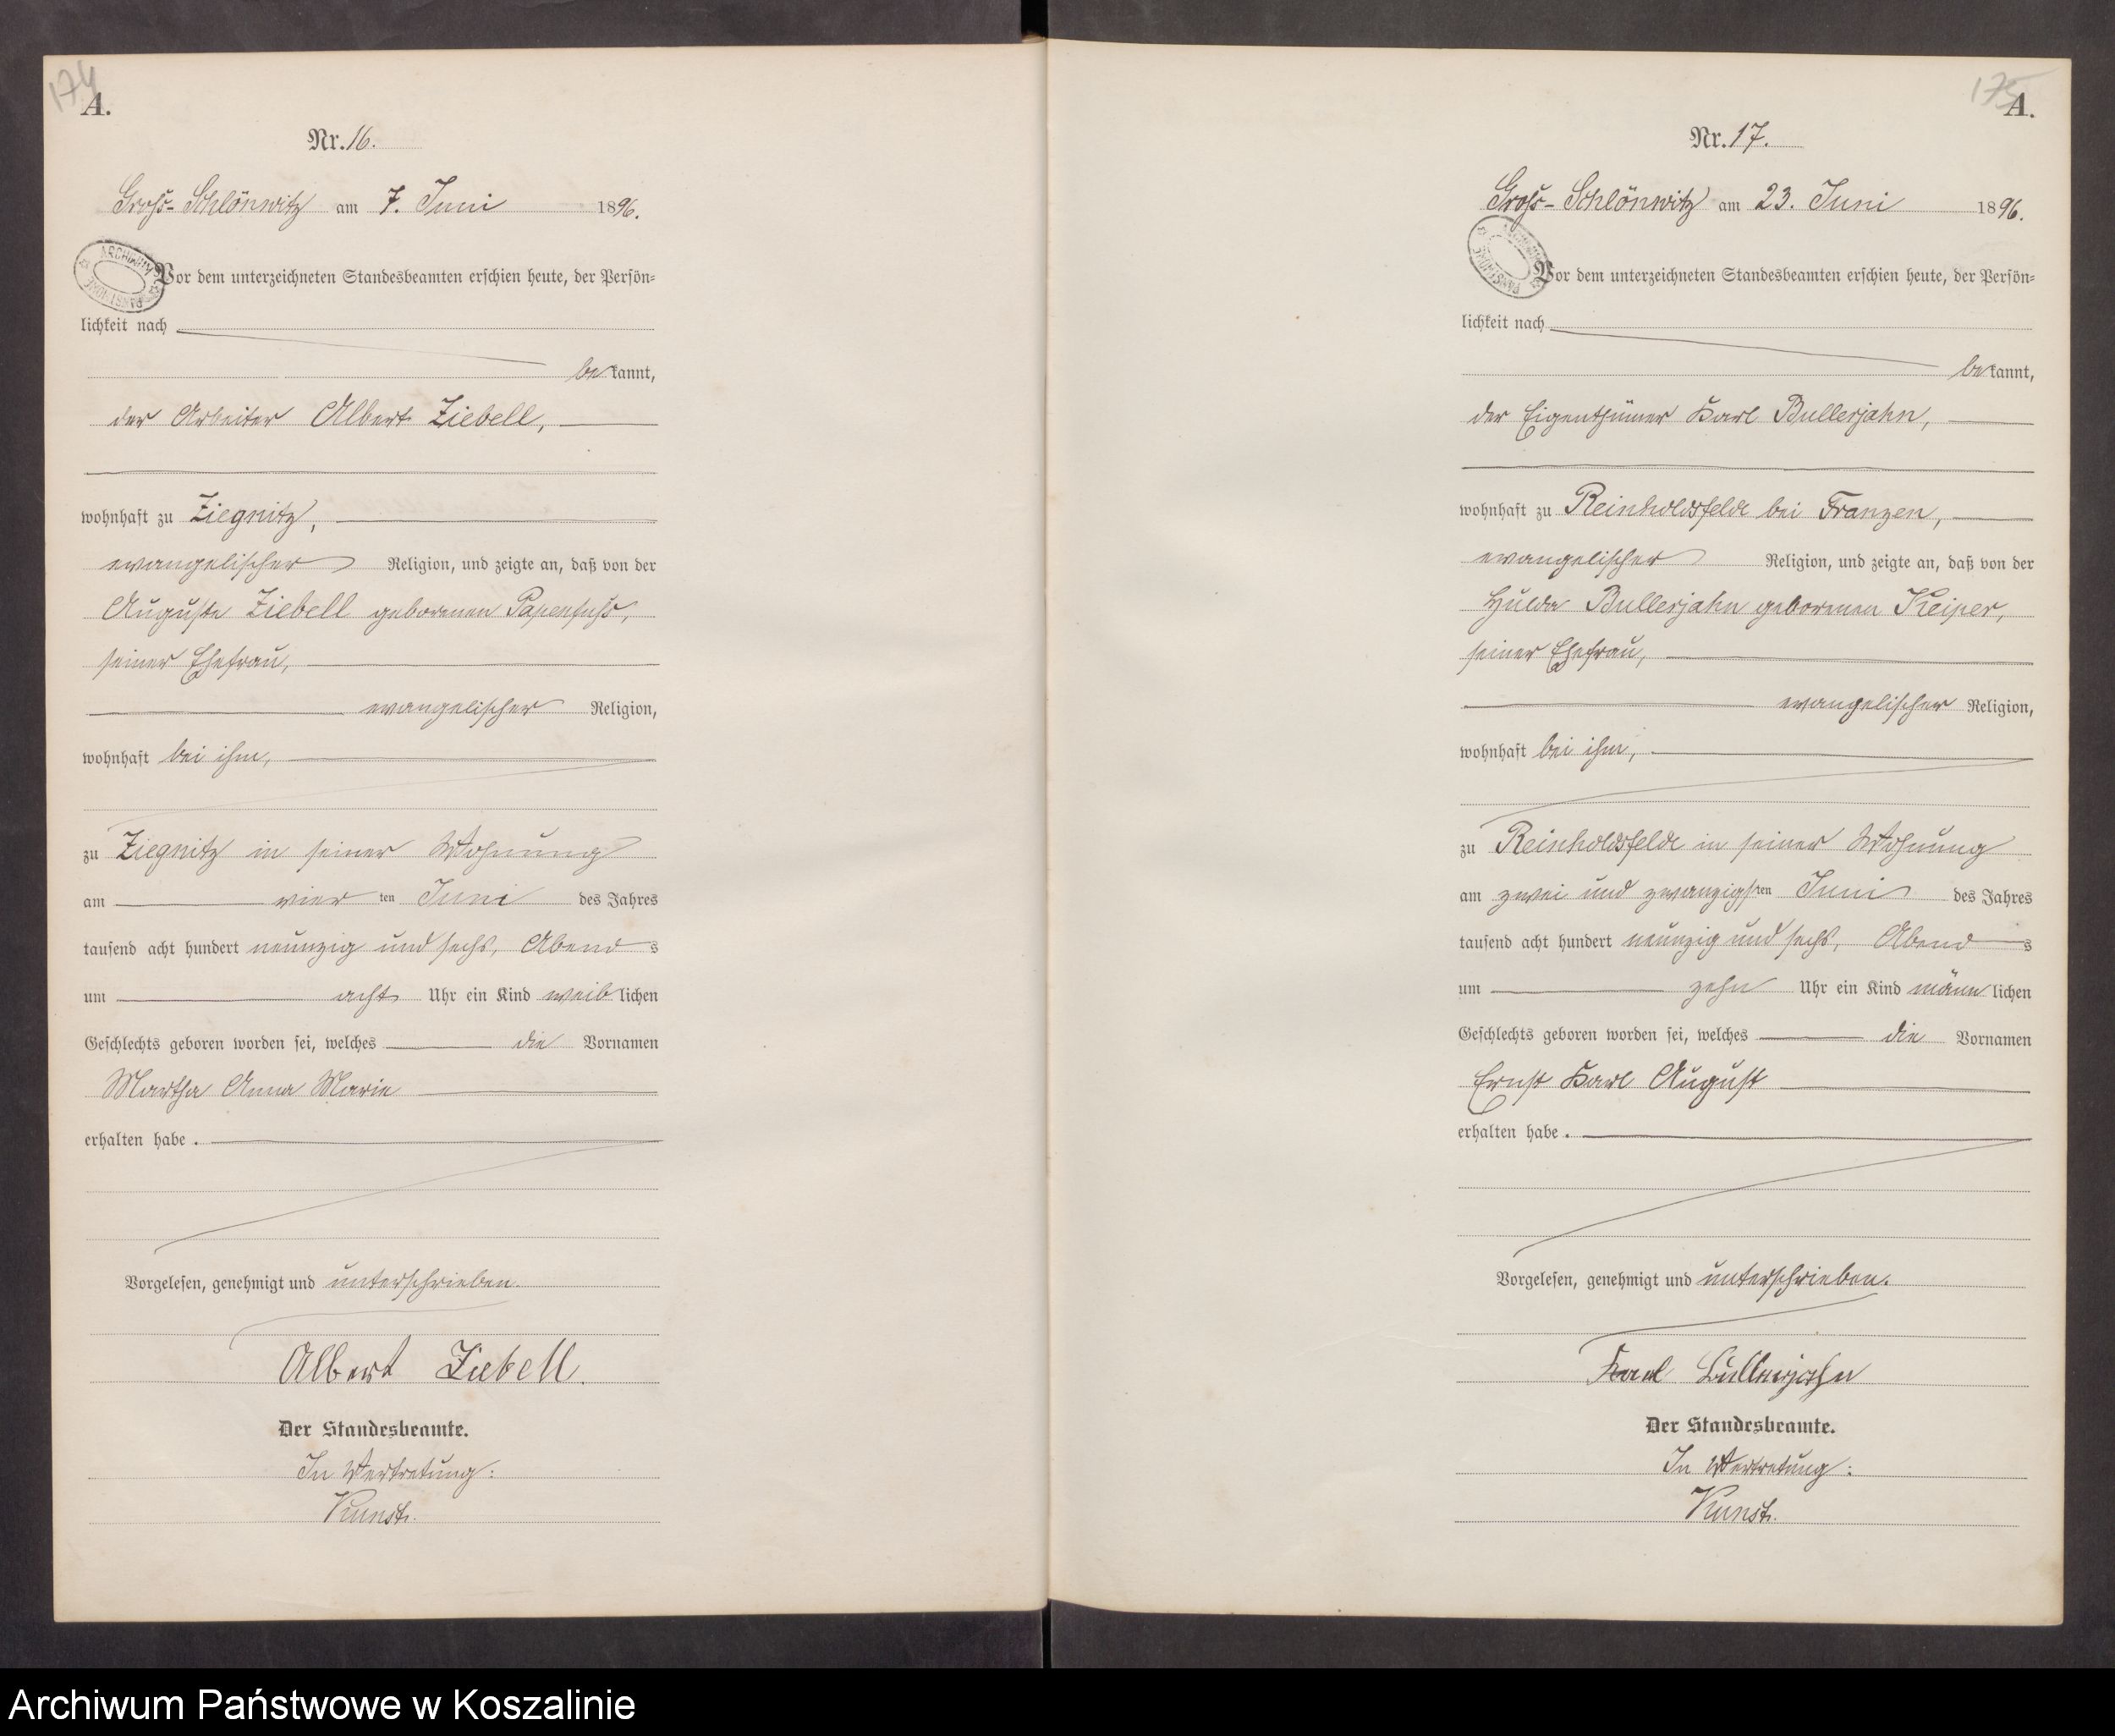 174
A.
Nr. 16.
Groß-Schlönwitz am 7. Juni 1896.
ARCHIWUM PAŃSTWOWE
Vor dem unterzeichneten Standesbeamten erschien heute, der Persön-
lichkeit nach
bekannt,
der Arbeiter Albert Ziebell,
wohnhaft zu Ziegnitz,
evangelischer Religion, und zeigte an, daß von der
Auguste Ziebell geborenen Papenfuß,
seiner Ehefrau,
evangelischer Religion,
wohnhaft bei ihm,
zu Ziegnitz in seiner Wohnung
am vierten Juni des Jahres
tausend acht hundert neunzig und sechs, Abends
um acht Uhr ein Kind weiblichen
Geschlechts geboren worden sei, welches die Vornamen
Martha Anna Marie
erhalten habe.
Vorgelesen, genehmigt und unterschrieben.
Albert Ziebell.
Der Standesbeamte.
In Vertretung:
Kunst.
175
A.
Nr. 17.
Groß-Schlönwitz am 23. Juni 1896.
ARCHIWUM PAŃSTWOWE
Vor dem unterzeichneten Standesbeamten erschien heute, der Persön-
lichkeit nach
bekannt,
der Eigenthümer Karl Bullerjahn,
wohnhaft zu Reinholdsfelde bei Franzen,
evangelischer Religion, und zeigte an, daß von der
Hulda Bullerjahn geborenen Keiper,
seiner Ehefrau,
evangelischer Religion,
wohnhaft bei ihm,
zu Reinholdsfelde in seiner Wohnung
am zwei und zwanzigsten Juni des Jahres
tausend acht hundert neunzig und sechs, Abends
um zehn Uhr ein Kind männlichen
Geschlechts geboren worden sei, welches die Vornamen
Ernst Karl August
erhalten habe.
Vorgelesen, genehmigt und unterschrieben.
Karl Bullerjahn
Der Standesbeamte.
In Vertretung:
Kunst.
Archiwum Państwowe w Koszalinie